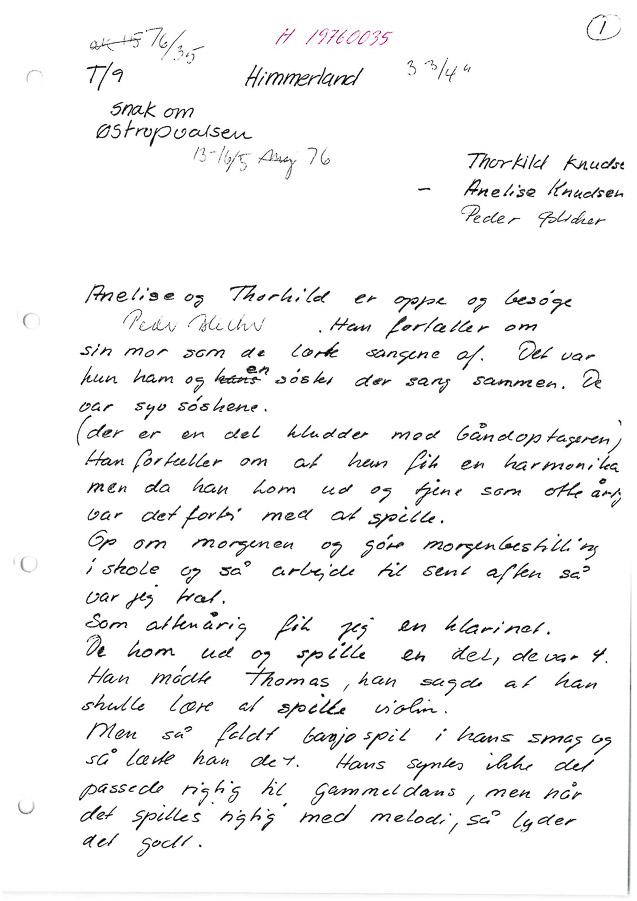 76/35
H 19760035
1
T/9
Himmerland
3 3/4"
snak om
Østrupvalsen
13-16/5 76
Thorkild Knudse
- Anelise Knudsen
Peder Blicher
Anelise og Thorkild er oppe og besøge
Peder Blicher . Han fortæller om
sin mor som de lærte sangene af. Det var
hun ham og hans en søster der sang sammen. De
var syv søskene.
(der er en del kludder med båndoptageren)
Han fortæller om at han fik en harmonika
men da han kom ud og tjene som otte årig
var det forbi med at spille.
Op om morgenen og göre morgenbestilling
i skole og så arbejde til sent aften så
var jeg træt.
Som attenårig fik jeg en klarinet.
De kom ud og spille en del, de var 4.
Han mødte Thomas, han sagde at han
skulle lære at spille violin.
Men så faldt banjospil i hans smag og
så lærte han det. Hans syntes ikke det
passede rigtig til Gammeldans, men når
det spilles rigtig med melodi, så lyder
det godt.